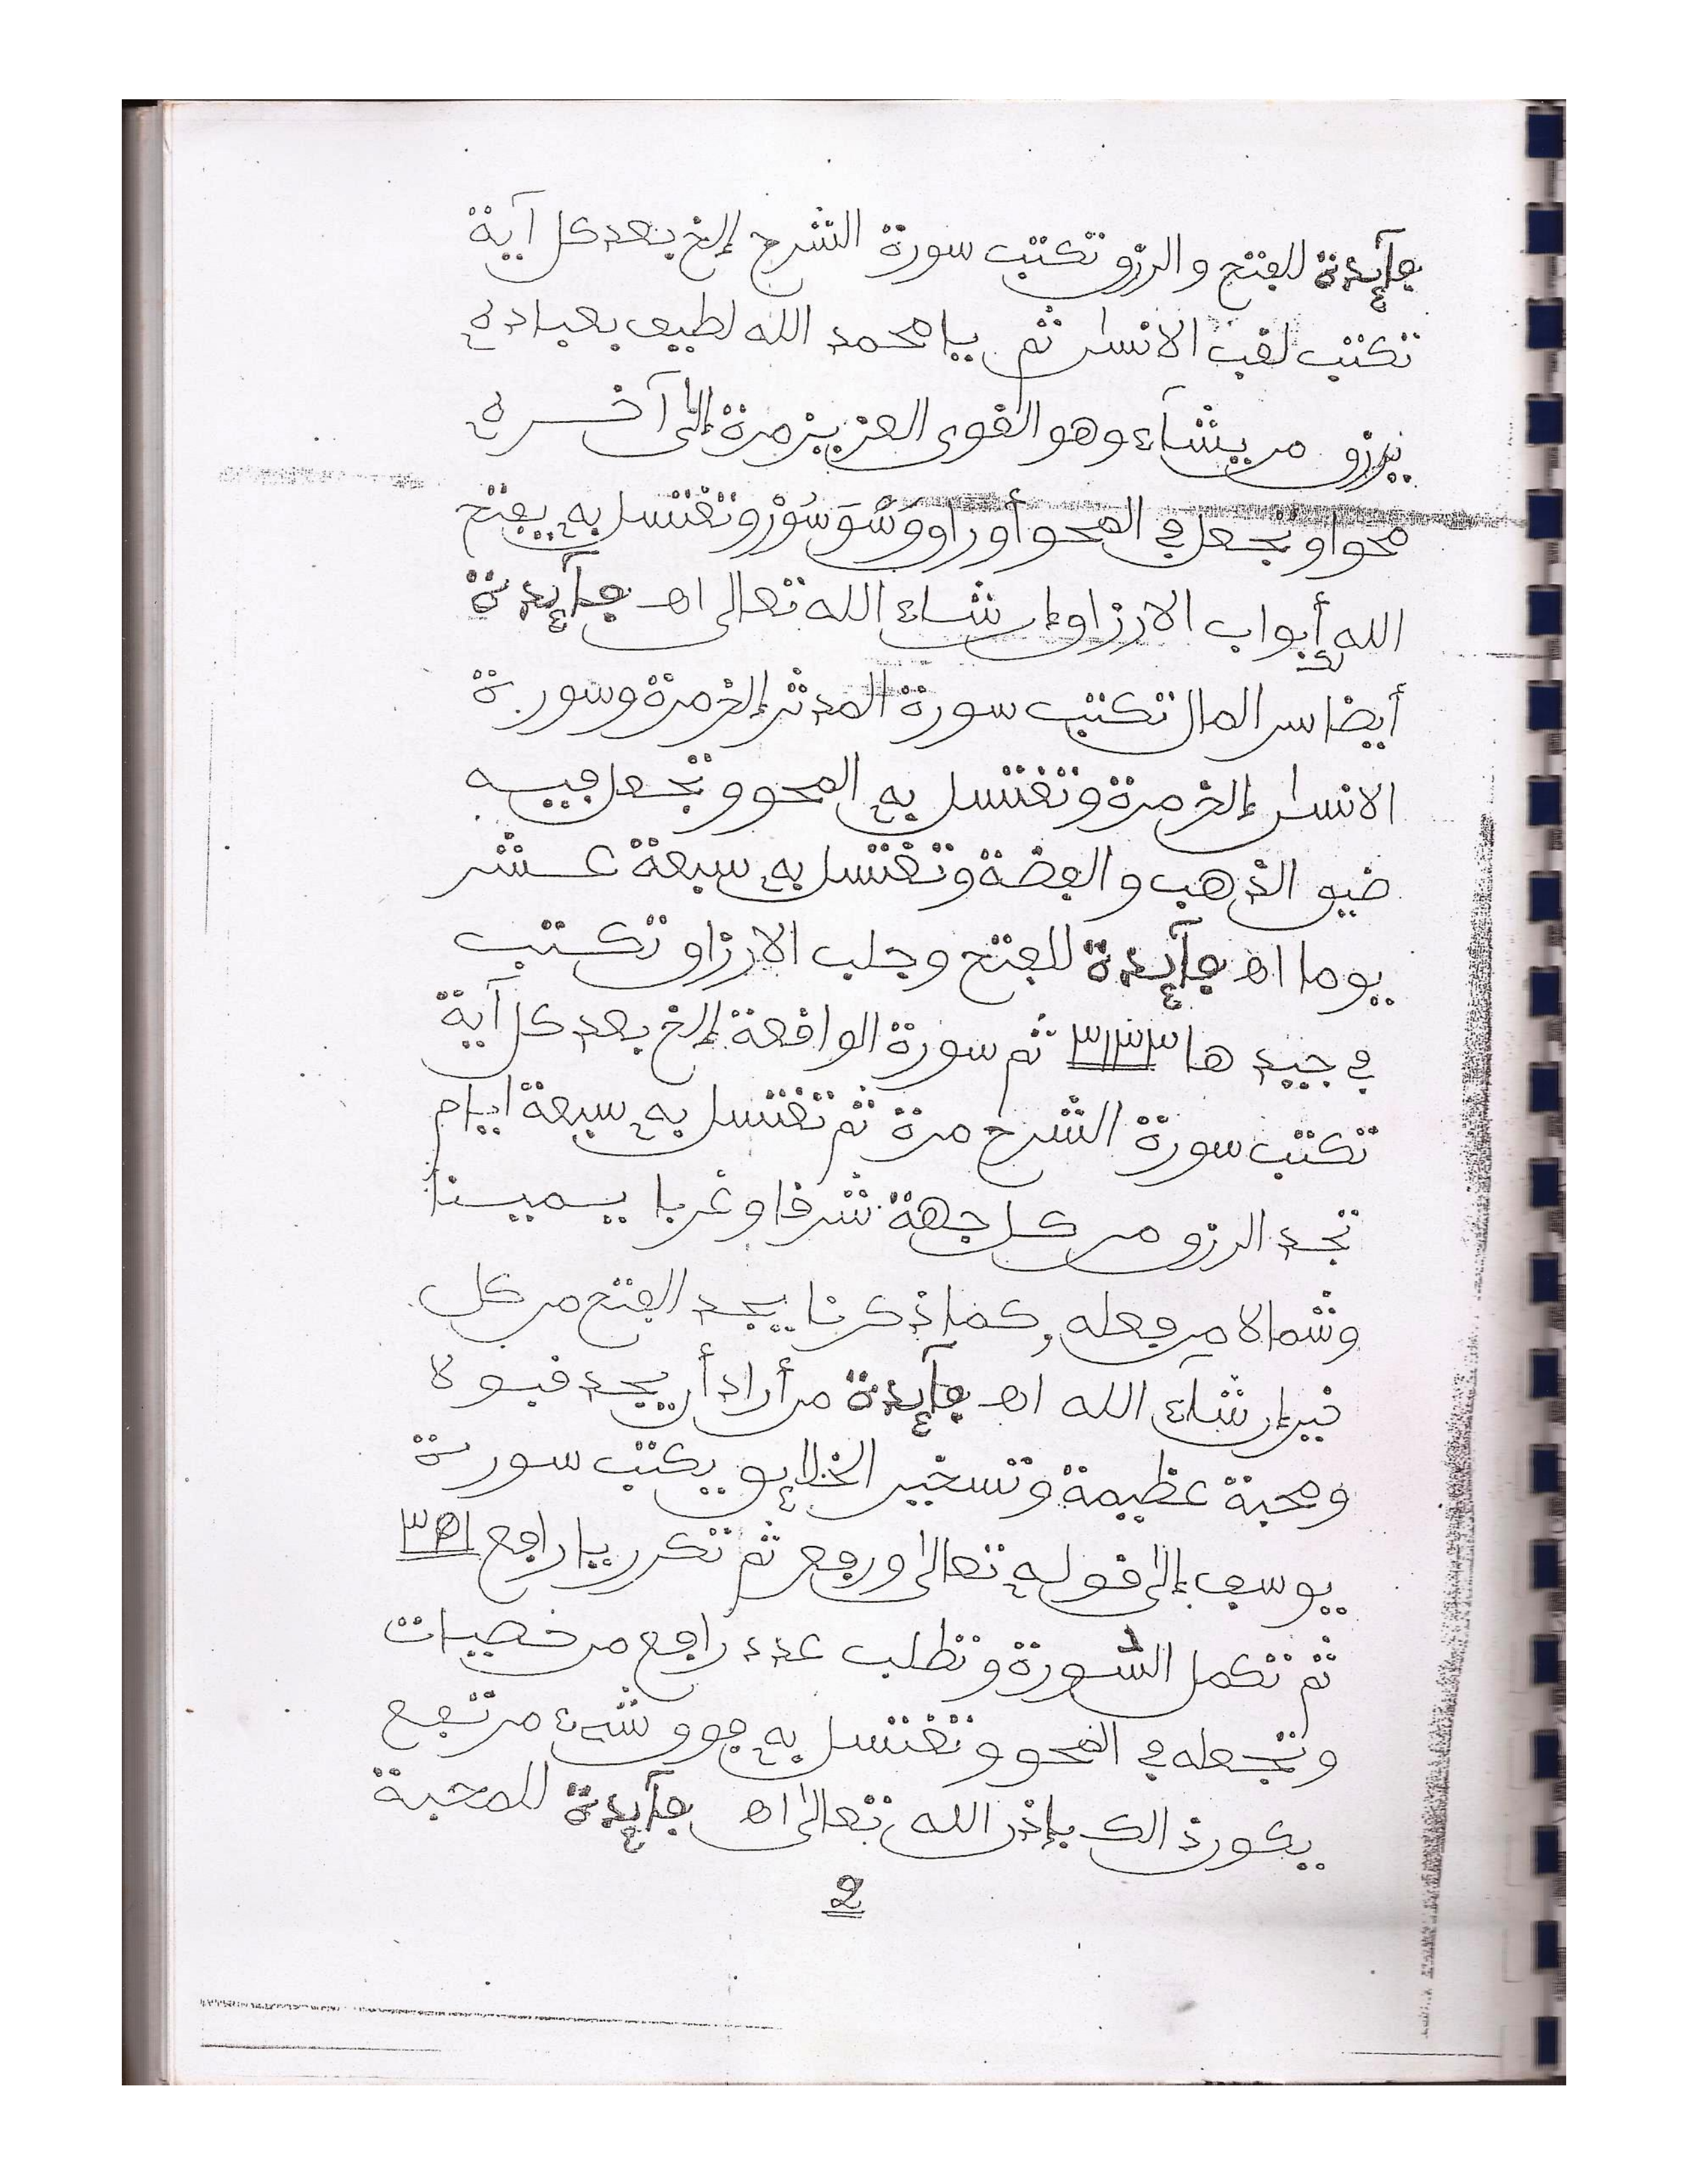 فآئدة للفتح والرزق تكتب سورة الشرح إلخ بعد كل آية
تكتب لقب الانسان ثم يا محمد الله لطيف بعباده
يرزق من يشآء وهو القوى العزيز مرة إلى آخره
محوا وتجعل في المحو أوراق وَسْوَسُوْر وتغتسل به يفتح
الله لك أبواب الارزاق إن شاء الله تعالى اهـ فآئدة
أيضا سر المال تكتب سورة المدثر إلخ مرة وسورة
الانسان إلخ مرة وتغتسل به المحو وتجعل فيه
ضيق الذهب والفضة وتغتسل به سبعة عشر
يوما اهـ فآئدة للفتح وجلب الارزاق تكتب
في جيد ها ٣١٣٣ ثم سورة الواقعة إلخ بعد كل آية
تكتب سورة الشرح مرة ثم تغتسل به سبعة ايام
تجد الرزق من كل جهة شرقا وغربا يمينا
وشمالا من فعله كما ذكرنا يجد الفتح من كل
خير إن شآء الله اهـ فآئدة من أراد أن يجد قبولا
ومحبة عظيمة وتسخير الخلائق يكتب سورة
يوسف إلى قوله تعالى ورفع ثم تكرر يا رافع ٣٥١
ثم تكمل السورة وتطلب عدد رافع من خصيات
وتجعله في المحو وتغتسل به فوق شىء مرتفع
يكون ذالك بإذن الله تعالى اهـ فآئدة للمحبة
2